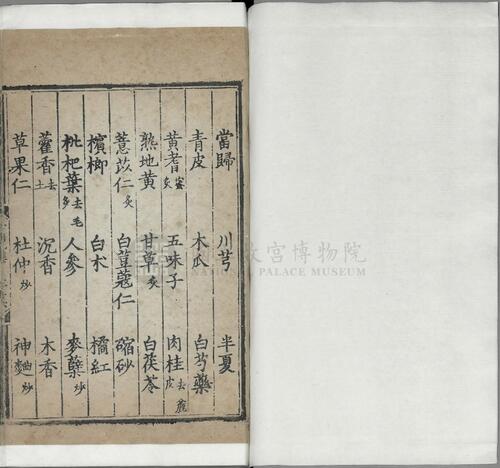 當歸 川芎 半夏
青皮 木瓜 白芍藥
黃耆蜜炙 五味子 肉桂去麄皮
熟地黃 甘草炙 白茯苓
薏苡仁炙 白荳蔻仁 縮砂
檳榔 白朮 橘紅
枇杷葉去毛多 人參 麥蘖炒
藿香去土 沉香 木香
草果仁 杜仲炒 神麯炒
故宮博物院
NATIONAL PALACE MUSEUM